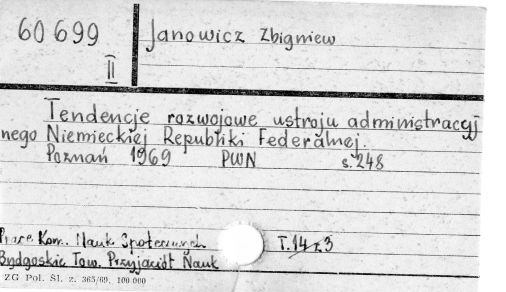 60 699
II
Janowicz Zbigniew
Tendencje rozwojowe ustroju administracyj
nego Niemieckiej Republiki Federalnej.
Poznań 1969 PWN s. 248
Prace Kom. Nauk Społecznych T. 14 z 3
Bydgoskie Tow. Przyjaciół Nauk
ZG Pol. Śl. z. 365/69. 100 000